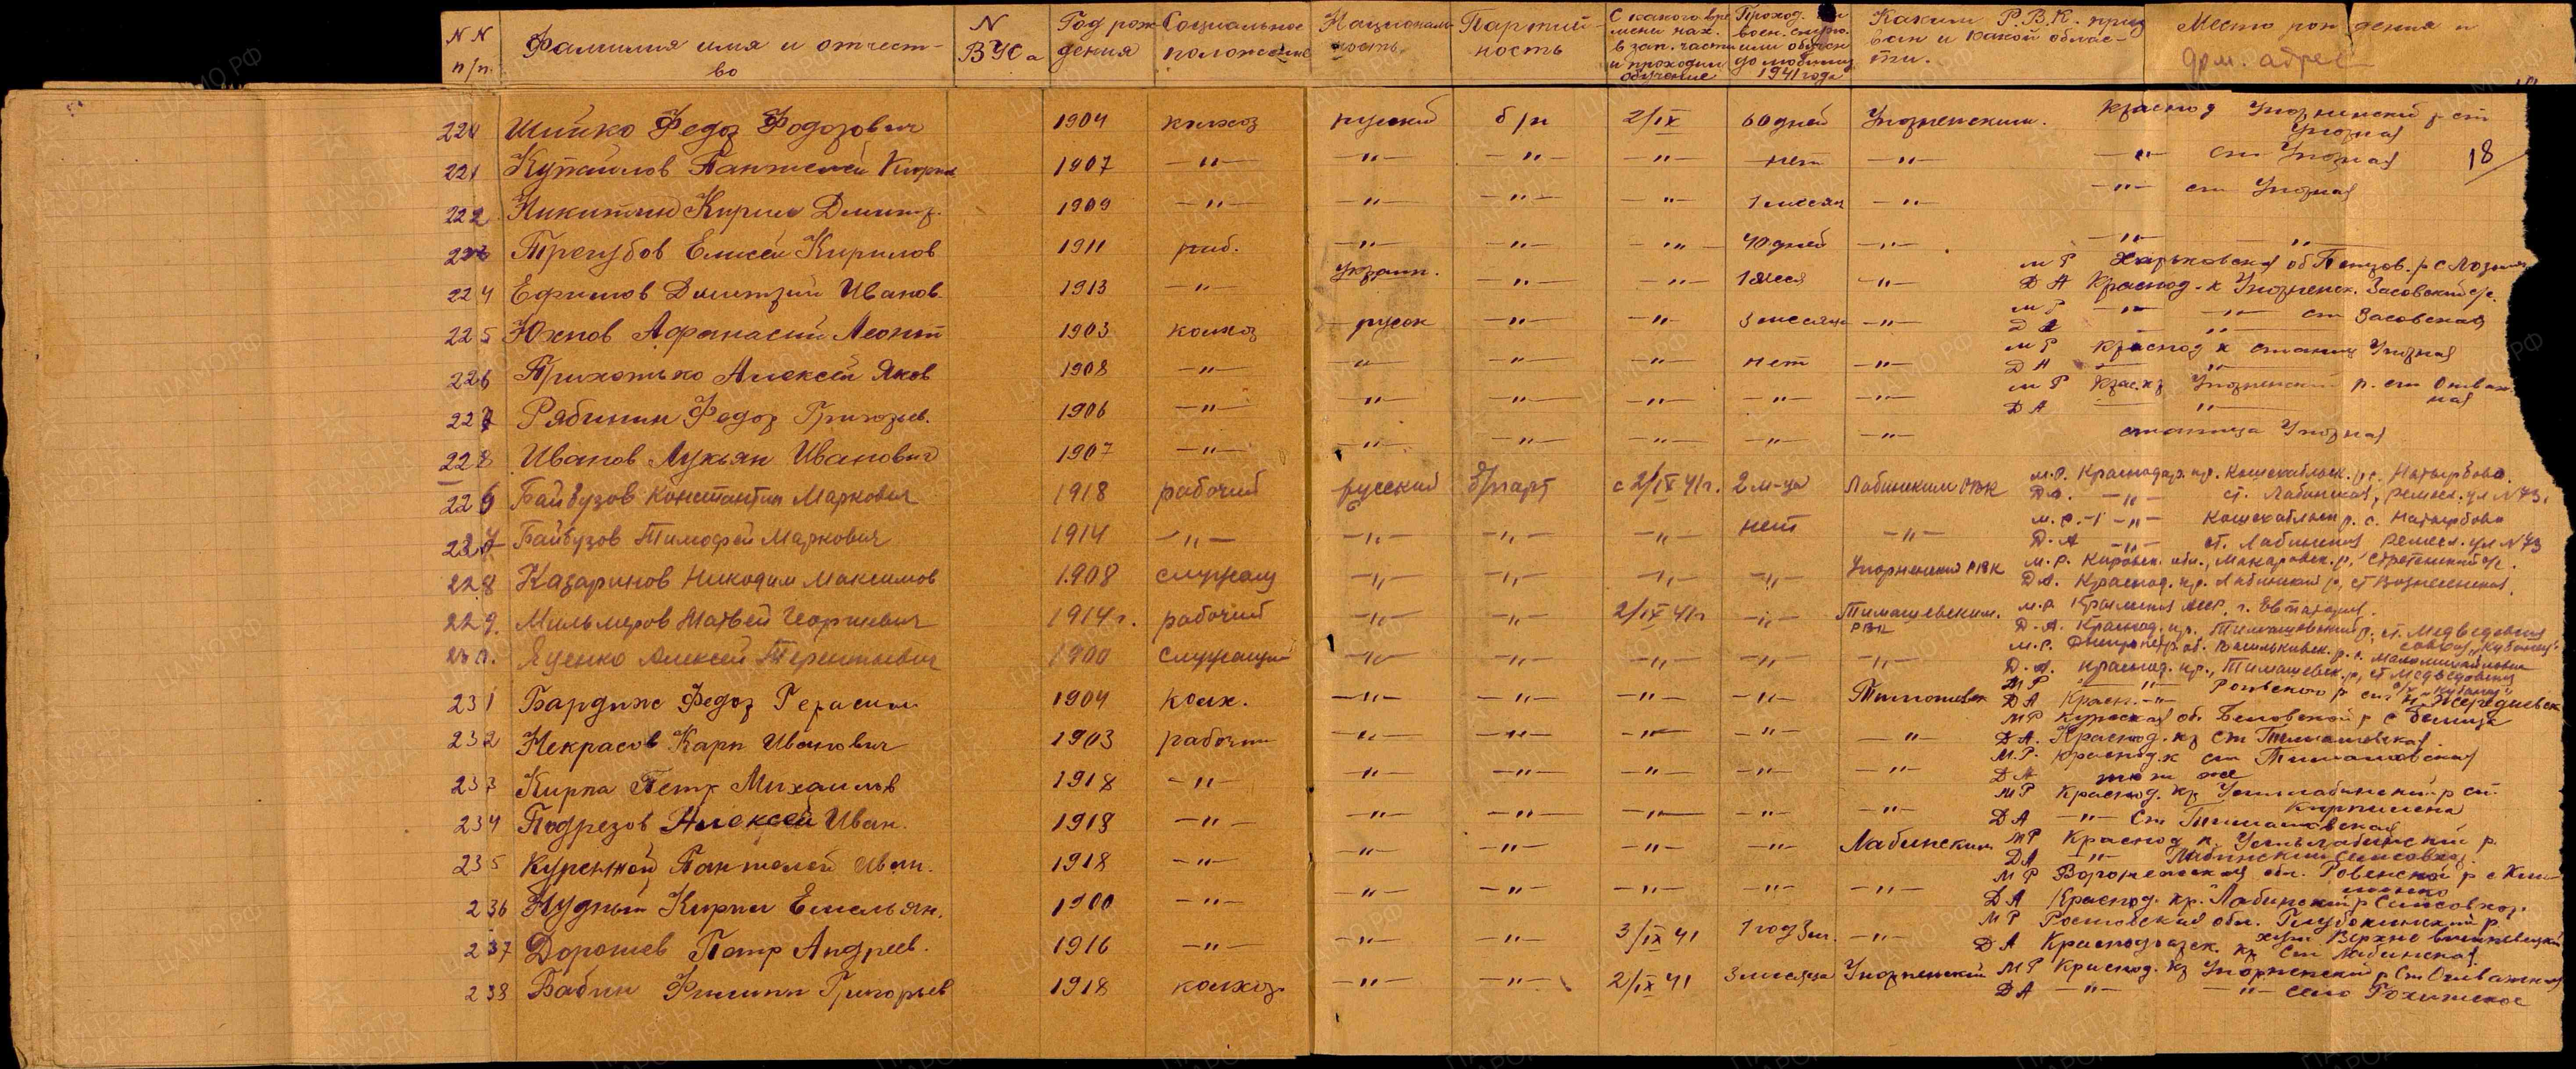 N N п/п. Фамилия имя и отчество N ВУСа Год рождения Социальное положение Национальность Партийность С какого времени нах. в зап. части и проходил обучение Проход. воен. или обучен до мобилиз 1941 года Каким Р.В.К. призван и какой области. Место рождения и дом. адрес
18
224 Шийко Федор Фодорович 1904 колхоз русский б/п 2/IX 60 дней Упорненским. Краснод Упорнинский р ст Упорная
221 Купайлов Пантелей 1907 —"— —"— —"— —"— нет —"— —"— ст Упорная
222 Никитин Кирил Дмитр. 1909 —"— —"— —"— —"— 1 месяц —"— —"— ст Упорная
223 Трегубов Елисей Кирилов 1911 раб. —"— —"— —"— 40 дней —"— —"— —"—
224 Ефимов Дмитрий Иванов. 1913 —"— Украин. —"— —"— 1 меся —"— М Р Харьковская об р с
Д А Краснод-к Упорненск. Засовский с/с.
225 Юхнов Афанасий Леонт 1903 колхоз русск —"— —"— 3 месяца —"— М Р —"— —"— ст Засовская
Д А —"—
226 Прихотько Алексей Яков 1908 —"— —"— —"— —"— нет —"— М Р Краснод к станиц Упорная
Д А —"—
227 Рябинин Федор Григорьев. 1906 —"— —"— —"— —"— —"— —"— М Р Крас.кр Упорненский р. ст
Д А —"—
228 Иванов Лукьян Иванович 1907 —"— —"— —"— —"— —"— —"— станица Упорная
226 Байбузов Константин Маркович 1918 рабочий русский б/парт с 2/IX 41г. 2 м-ца Лабинским РВК м.р. Краснодар. кр. Кошехабльск. р. с. Натырбово.
Д.А. —"— ст. Лабинская, ремесл. ул N 73.
227 Байбузов Тимофей Маркович 1914 —"— —"— —"— —"— нет —"— м.р. —"— Кошехабльск р. с. Натырбово
Д.А —"— ст. Лабинская ремесл. ул N 73
228 Казаринов Никодим Максимов 1908 служащ —"— —"— —"— —"— Упорненский РВК м.р. Кировск. обл., Макаровск. р, Стретенский с/с.
Д.А. Краснод. кр. Лабинский р, ст Вознесенская.
229. Мильмеров Матвей Георгиевич 1914 г. рабочий —"— —"— 2/IX 41г —"— Тимашевским. РВК м.р. Крымская АССР, г. Евпатория.
Д.А. Краснод. кр. Тимашевский р, ст. Медведовская совхоз „Кубанец".
230. Яценко Алексей Терентьевич 1900 служащий —"— —"— —"— —"— —"— м.р. Днепропетр. об. Васильковск. р. с.
Д.А. Краснод. кр., Тимашевск. р, ст Медведовская с/х „Кубанец"
231 Бардиж Федор Герасим 1904 колх. —"— —"— —"— —"— Тимошевск МР —"— р ст
ДА Красн. —"—
232 Некрасов Карп Иванович 1903 рабочий —"— —"— —"— —"— —"— МР Курская об Беловской р с Белица
ДА. Краснод. кр ст Тимашевская.
233 Кирпа Петр Михаилов 1918 —"— —"— —"— —"— —"— —"— М.Р. Краснод. к ст Тимашовская
ДА то же
234 Подрезов Алексей Иван. 1918 —"— —"— —"— —"— —"— —"— МР Краснод. кр Устьлабинский р ст.
ДА —"— ст Тимашовская
235 Куренной Пантелей Иван. 1918 —"— —"— —"— —"— —"— Лабинским МР Краснод к. Устьлабинский р.
ДА —"— Лабинский
236 Нудный Кирил Емельян. 1900 —"— —"— —"— —"— —"— —"— МР Воронежская обл. Ровенской р с
ДА Краснод. кр. Лабинский р
237 Дорошев Петр Андреев. 1916 —"— —"— —"— 3/IX 41 1 год —"— МР Ростовская обл. Глубокинский р.
ДА Краснодарск. кр ст Лабинская.
238 Бабин Филипп Григорьев 1918 колхоз —"— —"— 2/IX 41 3 месяца Упорненский МР Краснод. кр Упорненский р ст
ДА —"— —"— село